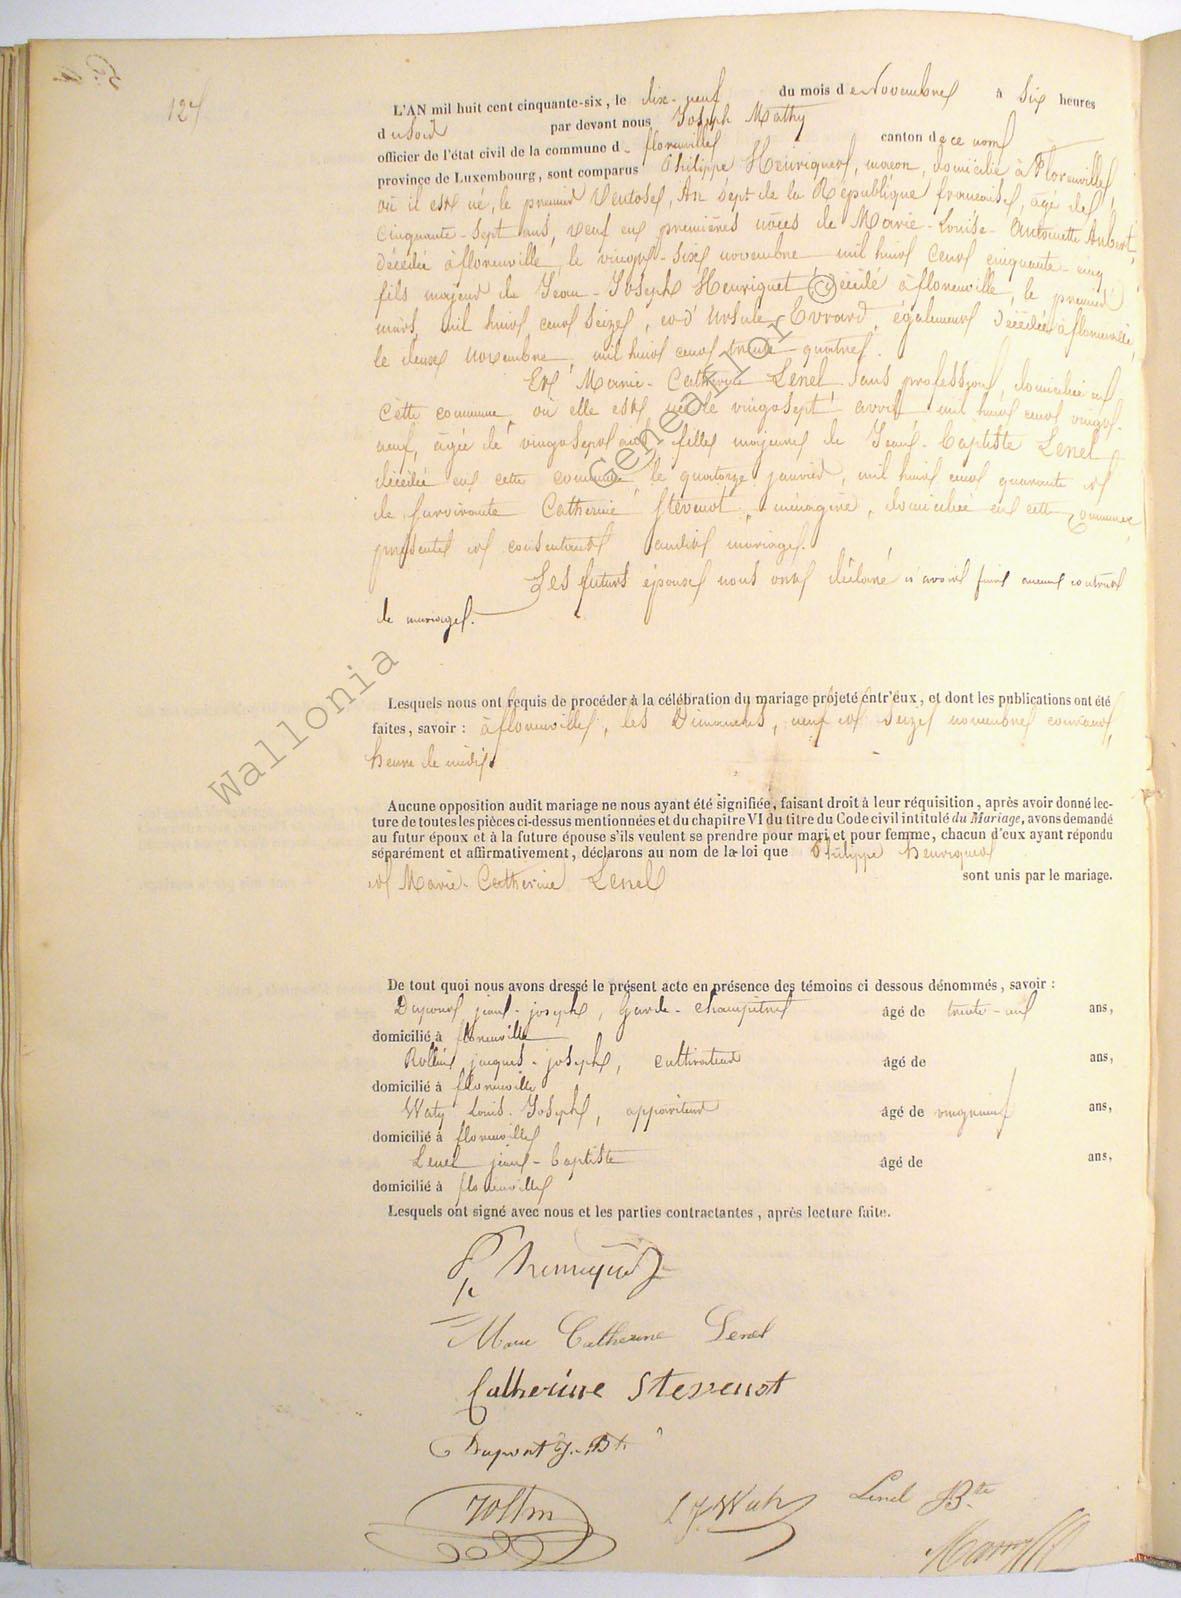 L'AN mil huit cent cinquante-six, le dix-neuf du mois de Novembre à Six heures
du Soir par devant nous Joseph Mathy
officier de l'état civil de la commune d florenville canton de ce nom
province de Luxembourg, sont comparus Philippe Henriquet, maçon, domicilié à Florenville,
où il est né, le premier Ventose, An Sept de la République francaise, âgé de
cinquante-sept ans, veuf en premières nôces de Marie-Louise-Antoinette Aubert,
décédée à florenville, le vingt-six novembre mil huit cent cinquante-cinq
fils majeur de Jean-Joseph Henriquet décédé à florenville, le premier
mars mil huit cent seize, et d'Ursule Evrard, également décédée à florenville,
le deux novembre, mil huit cent trente-quatre.
Et Marie-Catherine Lenel sans profession, domiciliée en
cette commune, où elle est née le vingt sept avril mil huit cent vingt-
neuf, âgée de vingt sept ans fille majeure de Jean-baptiste Lenel
décédé en cette commune le quatorze janvier, mil huit cent quarante et
de survivante Catherine Stévenot, ménagère, domiciliée en cette commune,
présente et consentante audit mariage.
Les futurs époux nous ont déclaré n'avoir fait aucun contrat
de mariage.
Lesquels nous ont requis de procéder à la célébration du mariage projeté entr'eux, et dont les publications ont été
faites, savoir : à florenville, les Dimanches, neuf et Seize novembre courant,
heure de midi.
Aucune opposition audit mariage ne nous ayant été signifiée, faisant droit à leur réquisition, après avoir donné lec-
ture de toutes les pièces ci-dessus mentionnées et du chapitre VI du titre du Code civil intitulé du Mariage, avons demandé
au futur époux et à la future épouse s'ils veulent se prendre pour mari et pour femme, chacun d'eux ayant répondu
séparément et affirmativement, déclarons au nom de la loi que Philippe henriquet
et Marie-Catherine Lenel sont unis par le mariage.
De tout quoi nous avons dressé le présent acte en présence des témoins ci dessous dénommés, savoir :
Dupont jean-joseph, Garde-champêtre âgé de trente-un ans,
domicilié à florenville
Rollin jacques-joseph, cultivateur âgé de ans,
domicilié à florenville
Waty Louis-Joseph, appariteur âgé de vingt neuf ans,
domicilié à florenville
Lenel jean-baptiste âgé de ans,
domicilié à florenville
Lesquels ont signé avec nous et les parties contractantes, après lecture faite.
Marie Catherine Lenel
Catherine Stevenot
Dupont
L J Waty Lenel Bte
Wallonia Geneaflor ©